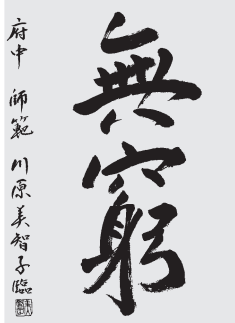 無窮
府中 師範 川原美智子臨